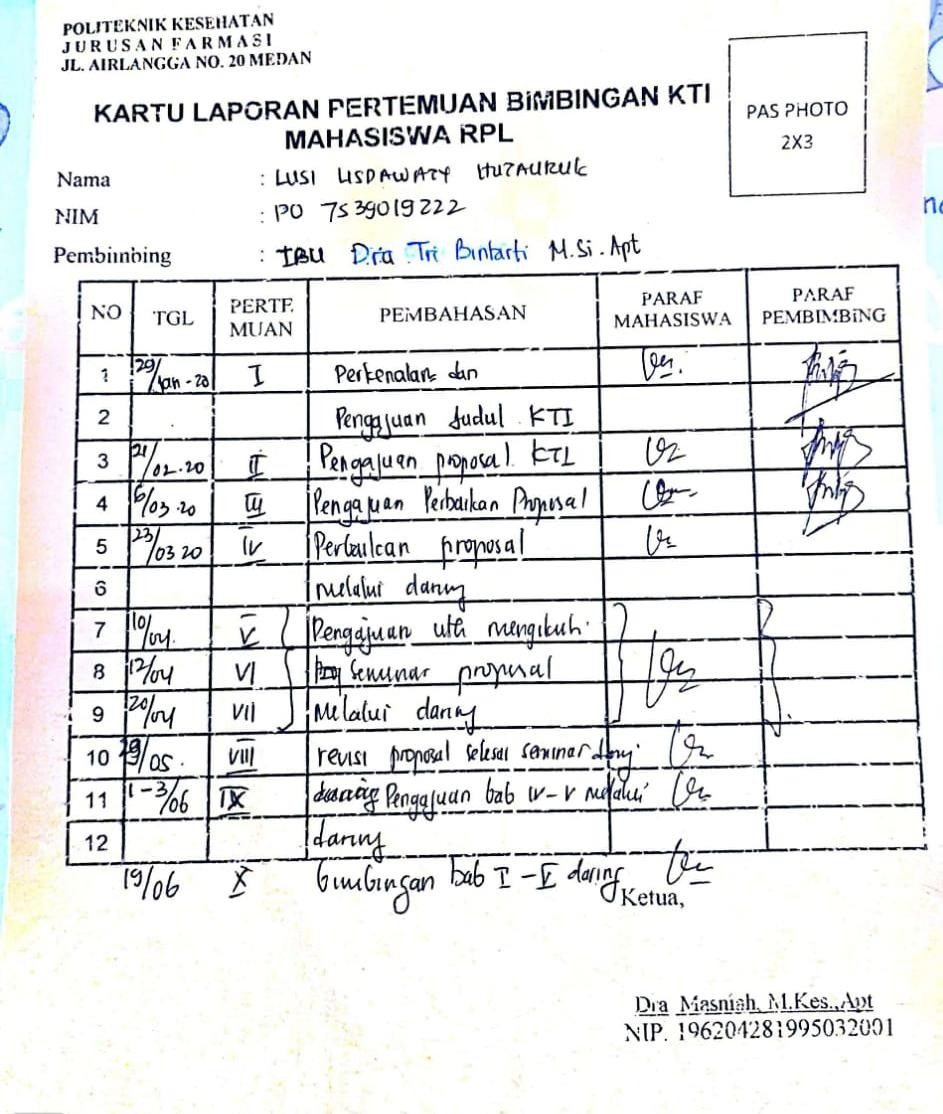 POLITEKNIK KESEHATAN
JURUSAN FARMASI
JL. AIRLANGGA NO. 20 MEDAN
KARTU LAPORAN PERTEMUAN BIMBINGAN KTI
MAHASISWA RPL
PAS PHOTO
2X3
Nama : LUSI LISDAWATY HUTAURUK
NIM : PO 7539019222
Pembimbing : IBU Dra Tri Bintarti M.Si. Apt
NO TGL PERTEMUAN PEMBAHASAN PARAF MAHASISWA PARAF PEMBIMBING
1 29/Jan-20 I Perkenalan dan
2 Pengajuan Judul KTI
3 21/02.20 II Pengajuan proposal KTI
4 6/03.20 III Pengajuan Perbaikan Proposal
5 23/03 20 IV Perbaikan proposal
6 melalui daring
7 10/04. V Pengajuan utk mengikuti
8 12/04 VI Seminar proposal
9 20/04 VII Melalui daring
10 /05. VIII revisi proposal selesai seminar
11 1-3/06 IX Pengajuan bab IV-V melalui
12 daring
19/06 X bimbingan bab I-V daring
Ketua,
Dra Masniah, M.Kes.,Apt
NIP. 196204281995032001